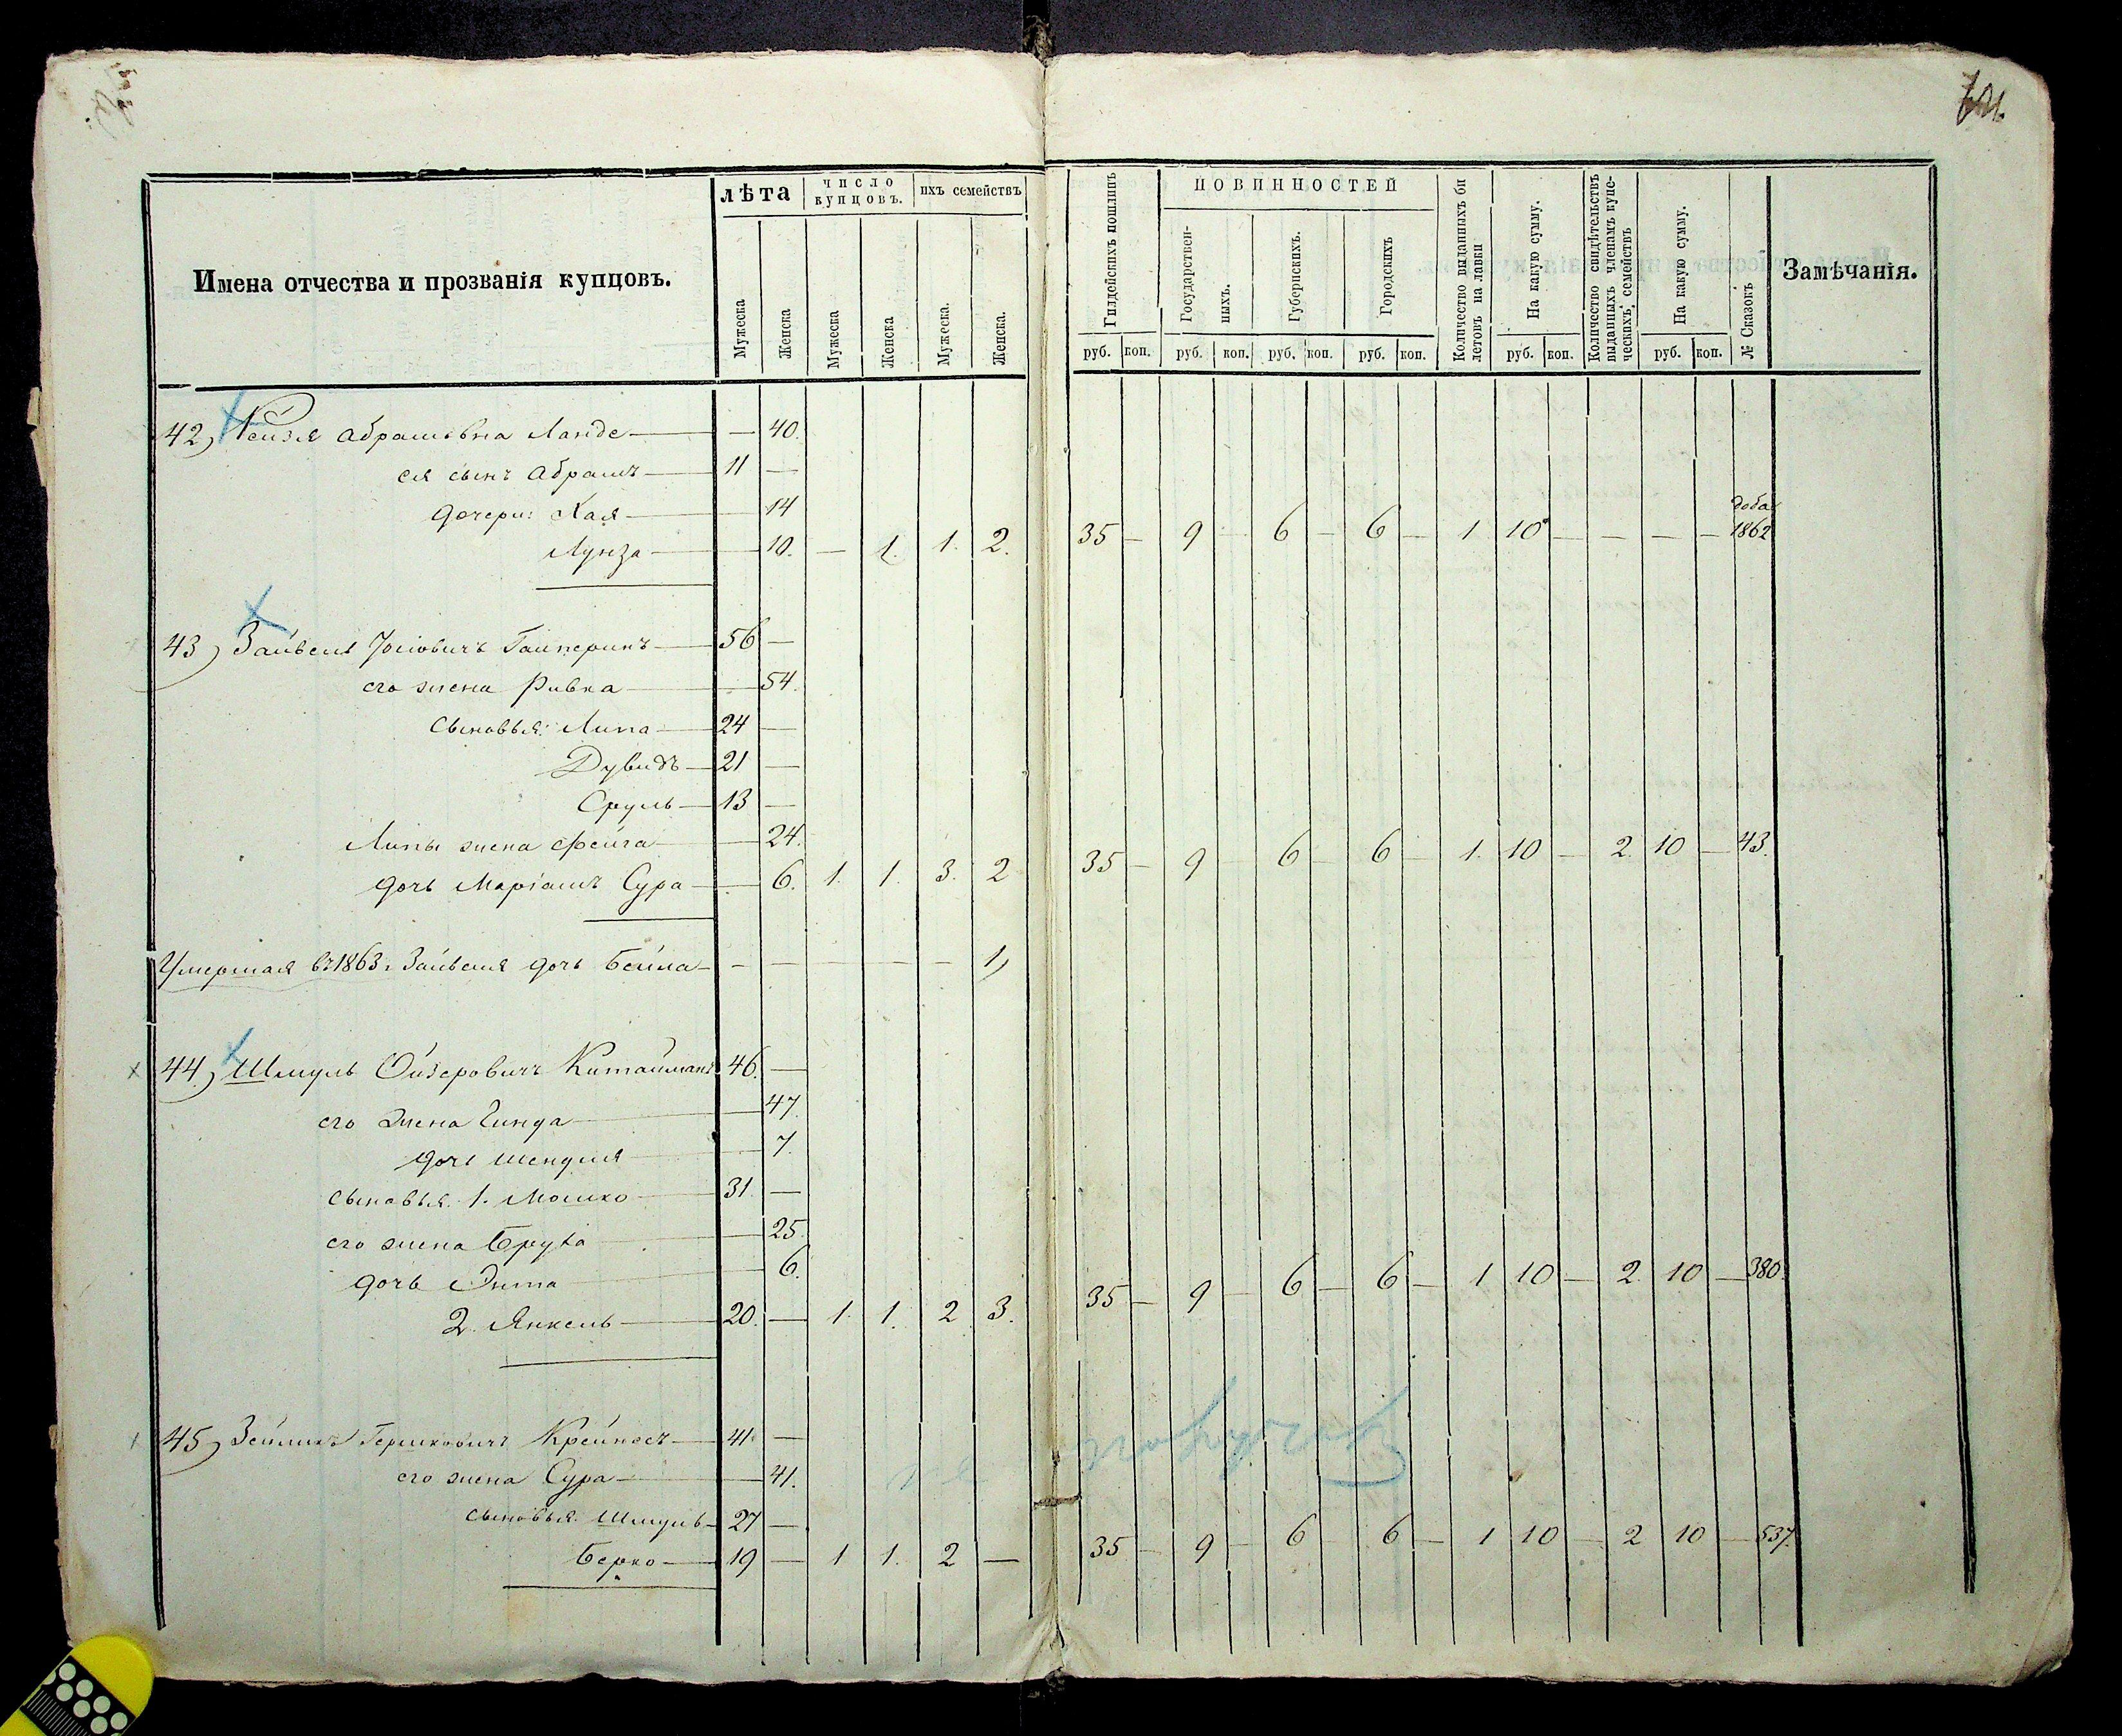 Имена отчества и прозванія купцовъ.
лѣта
число купцовъ.
ихъ семействъ
Мужеска
Женска
Мужеска
Женска
Мужеска.
Женска.
Гилдейскихъ пошлинъ
ПОВИННОСТЕЙ
Государственныхъ.
Губернскихъ.
Городскихъ
Количество выданныхъ билетовъ на лавки
На какую сумму.
Количество свидѣтельствъ выданныхъ членамъ купеческихъ семействъ
На какую сумму.
№ Сказокъ
Замѣчанія.
руб. коп. руб. коп. руб. коп. руб. коп. руб. коп. руб. коп.
42, Рейзя Абрамовна Ланде — — 40.
ея сынъ Абрамъ — 11 —
дочери: Хая — 14
— 10. — 1. 1. 2. 35 — 9 — 6 — 6 — 1 10 — — — — 1862
43, Зайвель Іосіовичъ Галперинъ — 56 —
его жена Ривка — 54.
сыновья: Липа — 24 —
Дувидъ — 21 —
Сруль — 13 —
Липы жена Фейга — 24.
дочь Маріамъ Сура — 6. 1. 1. 3. 2 35 — 9 — 6 — 6 — 1. 10 — 2. 10 — 43.
Умершая въ 1863 г. Зайвеля дочь Бейла — — — — — — 1,
44, Шмуль Ойзеровичъ Китайманъ 46. —
его жена Гинда — 47.
дочь Шендля — 7.
сыновья. 1. Мошко — 31 —
его жена Бруха — 25.
дочь Энта — 6.
2. Янкель — 20. — 1. 1. 2 3. 35 — 9 — 6 — 6 — 1 10 — 2. 10 — 380.
45, Зейликъ Гершковичъ Крейнесъ — 41. —
его жена Сура — 41.
сыновья. Шмуль — 27 —
Берко — 19 — 1 1. 2 — 35 — 9 — 6 — 6 — 1 10 — 2 10 — 537.